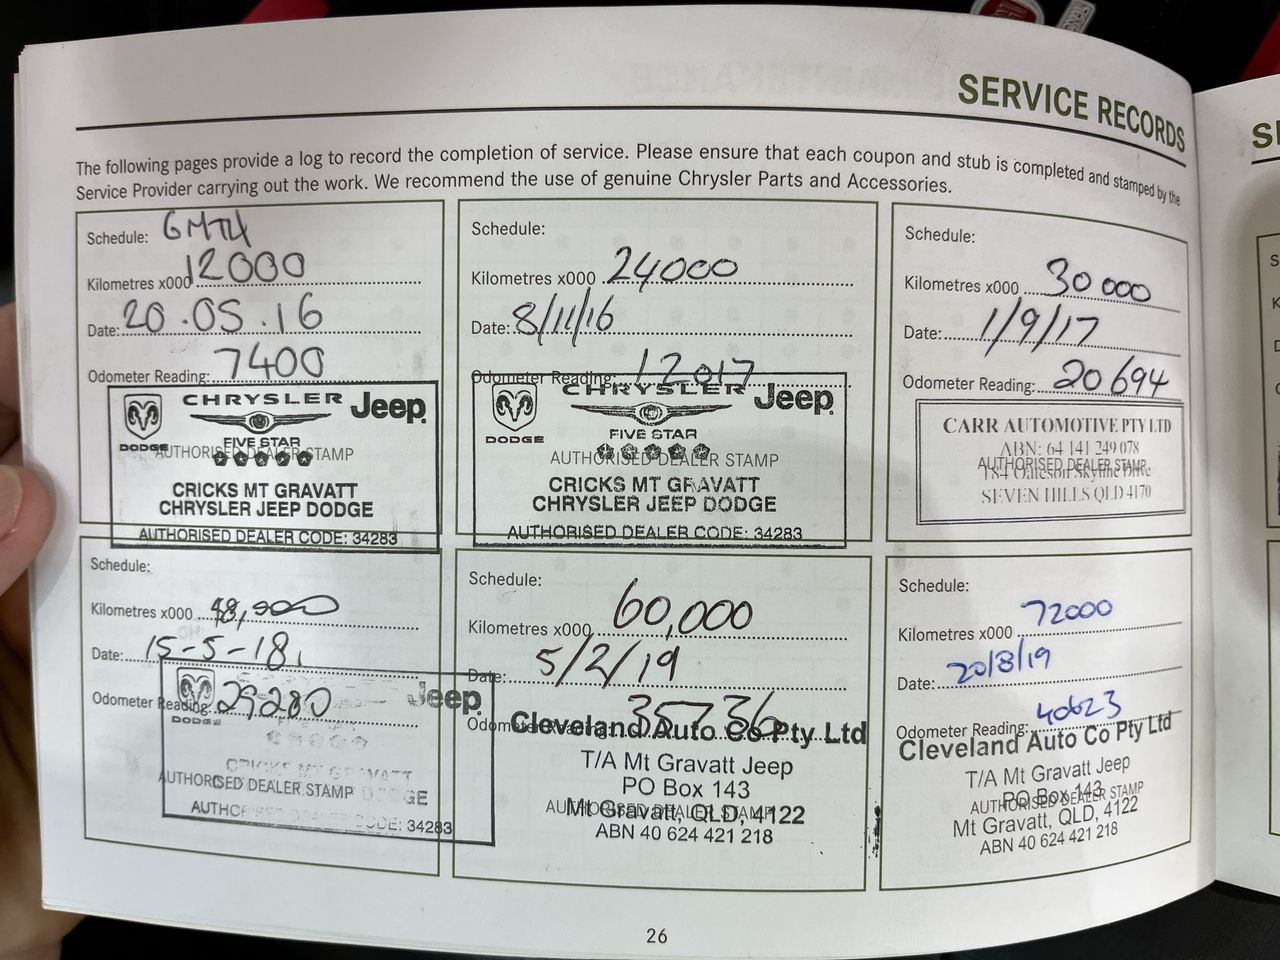 SERVICE RECORDS
The following pages provide a log to record the completion of service. Please ensure that each coupon and stub is completed and stamped by the
Service Provider carrying out the work. We recommend the use of genuine Chrysler Parts and Accessories.
Schedule: 6MTH
Kilometres x000 12000
Date: 20.05.16
Odometer Reading: 7400
CHRYSLER Jeep
DODGE
FIVE STAR
AUTHORISED DEALER STAMP
CRICKS MT GRAVATT
CHRYSLER JEEP DODGE
AUTHORISED DEALER CODE: 34283
Schedule:
Kilometres x000 24000
Date: 8/11/16
Odometer Reading: 12017
CHRYSLER Jeep
DODGE
FIVE STAR
AUTHORISED DEALER STAMP
CRICKS MT GRAVATT
CHRYSLER JEEP DODGE
AUTHORISED DEALER CODE: 34283
Schedule:
Kilometres x000 30 000
Date: 1/9/17
Odometer Reading: 20694
CARR AUTOMOTIVE PTY LTD
ABN: 64 141 249 078
AUTHORISED DEALER STAMP
184 Oateson Skyline Drive
SEVEN HILLS QLD 4170
Schedule:
Kilometres x000 48,000
Date: 15-5-18
Odometer Reading: 29280
Jeep
DODGE
CRICKS MT GRAVATT
AUTHORISED DEALER STAMP
DODGE
AUTHORISED DEALER CODE: 34283
Schedule:
Kilometres x000 60,000
Date: 5/2/19
Odometer Reading: 35736
Cleveland Auto Co Pty Ltd
T/A Mt Gravatt Jeep
PO Box 143
AUTHORISED DEALER STAMP
Mt Gravatt, QLD, 4122
ABN 40 624 421 218
Schedule:
Kilometres x000 72000
Date: 20/8/19
Odometer Reading: 40623
Cleveland Auto Co Pty Ltd
T/A Mt Gravatt Jeep
PO Box 143
AUTHORISED DEALER STAMP
Mt Gravatt, QLD, 4122
ABN 40 624 421 218
26